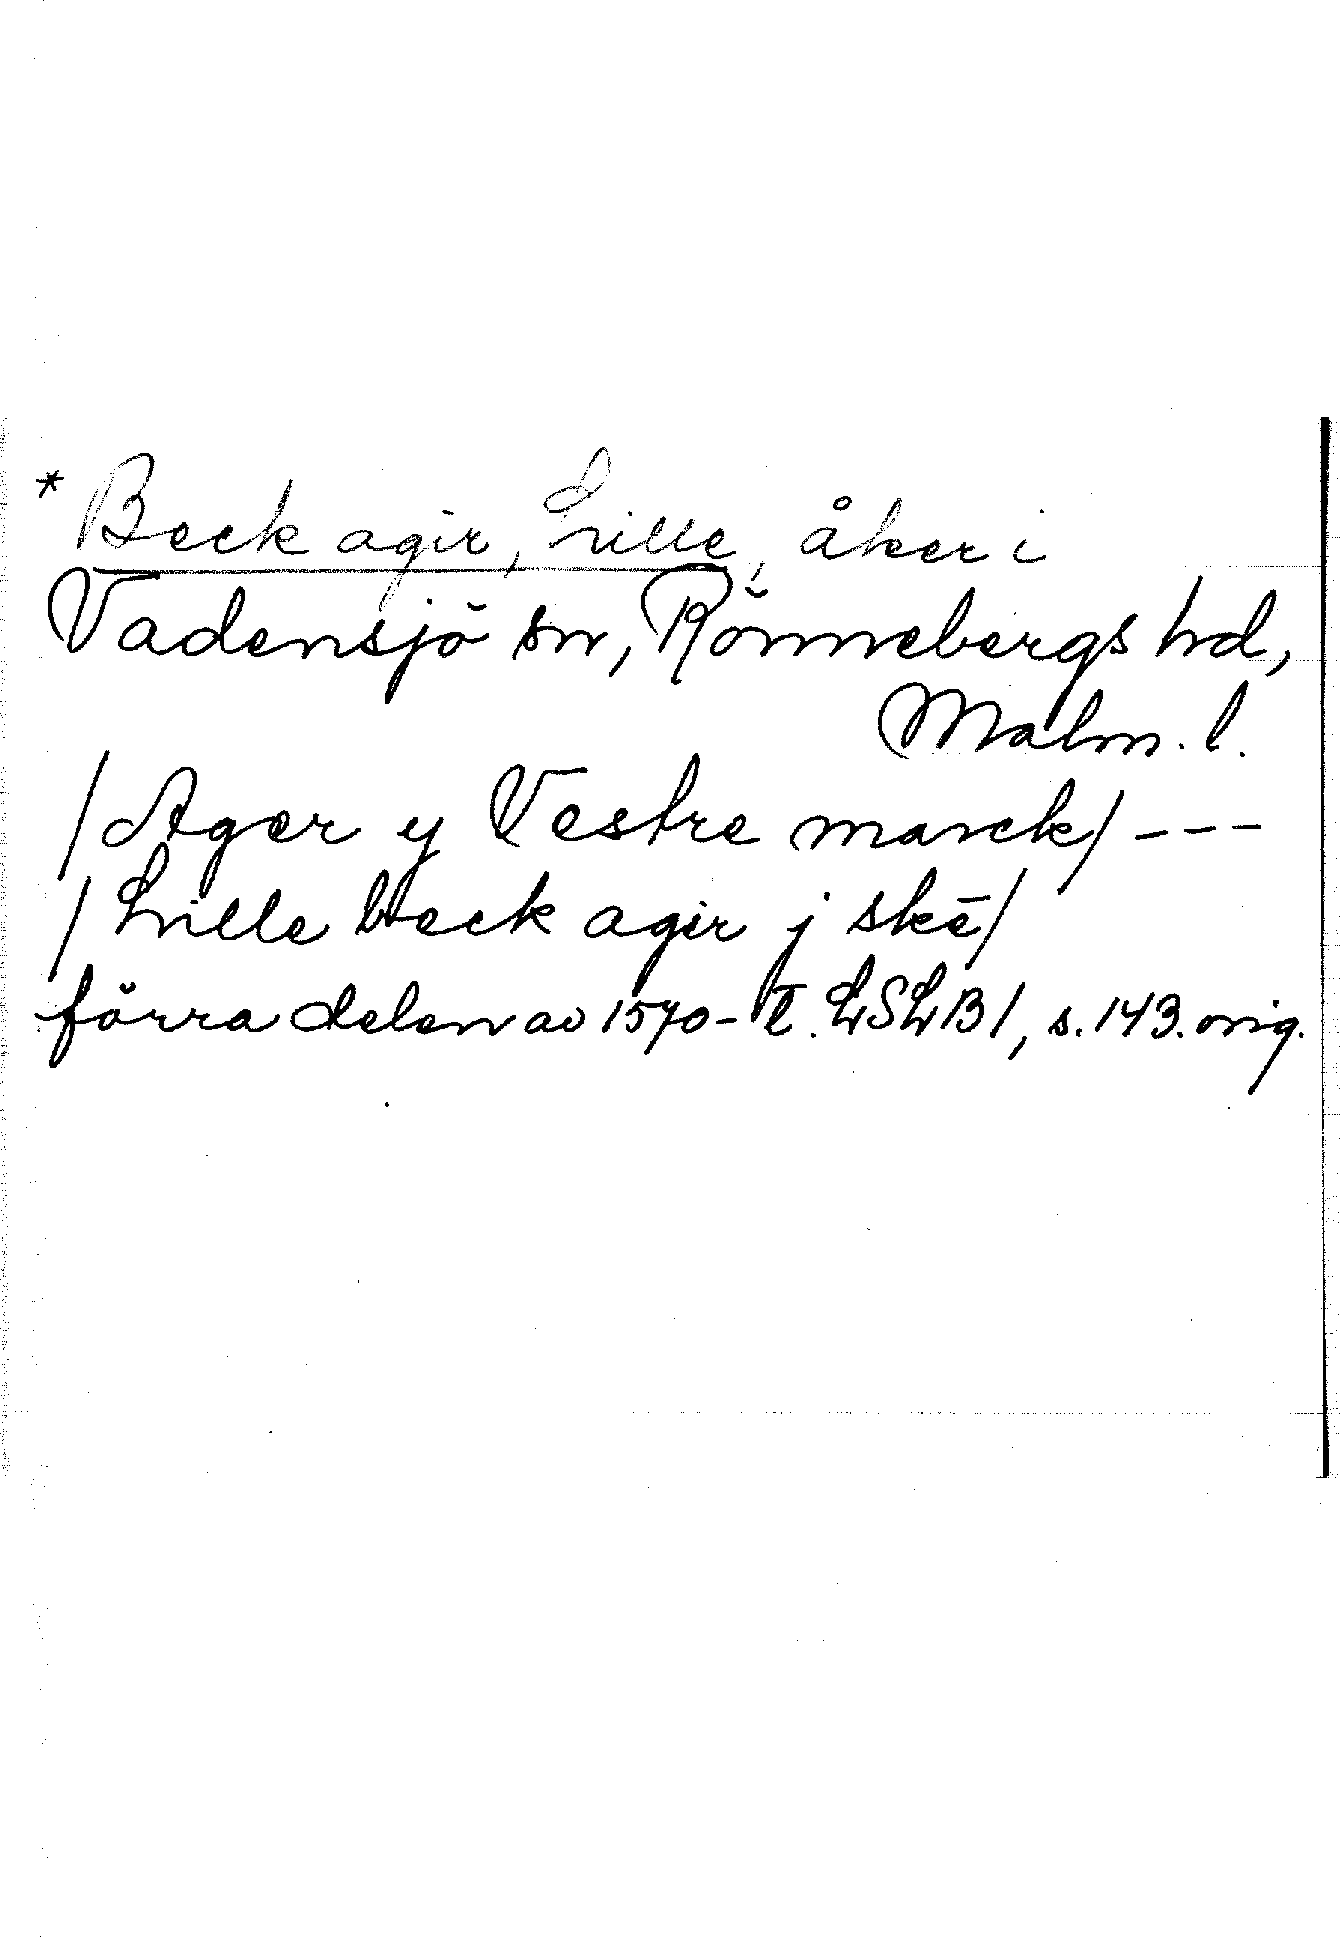 * Beck agir, Lille, åker i
Vadensjö sn, Rönnebergs hd,
Malm. l.
/Ager y Vestre marck/ - - -
/Lille beck agir j skē/
förra delen av 1570-t. LSLB1, s. 143. orig.